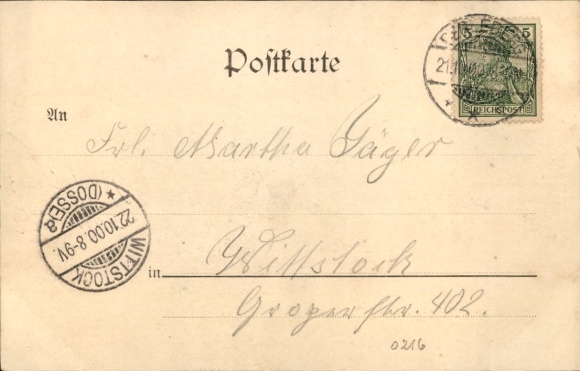 5
REICHSPOST
Postkarte
An
Frl. Martha Jäger
WITTSTOCK
(DOSSE) a
22.10.00. 8-9V.
in Wittstock
Groperstr. 402.
0216